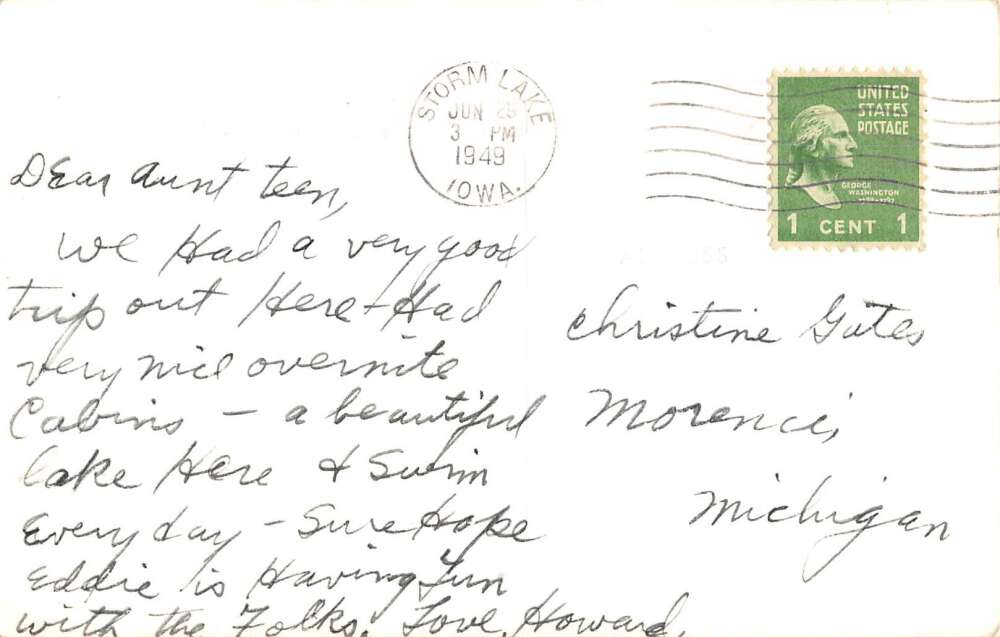 STORM LAKE
JUN 25
3 PM
1949
IOWA.
UNITED
STATES
POSTAGE
GEORGE
WASHINGTON
1 CENT 1
Dear Aunt teen,
We Had a very good
trip out Here - Had
very nice overnite
Cabins - a beautiful
lake Here & Swim
Every day - Sure Hope
Eddie is Having fun
with the Folks. Love, Howard,
Christine Gates
Morenci,
Michigan